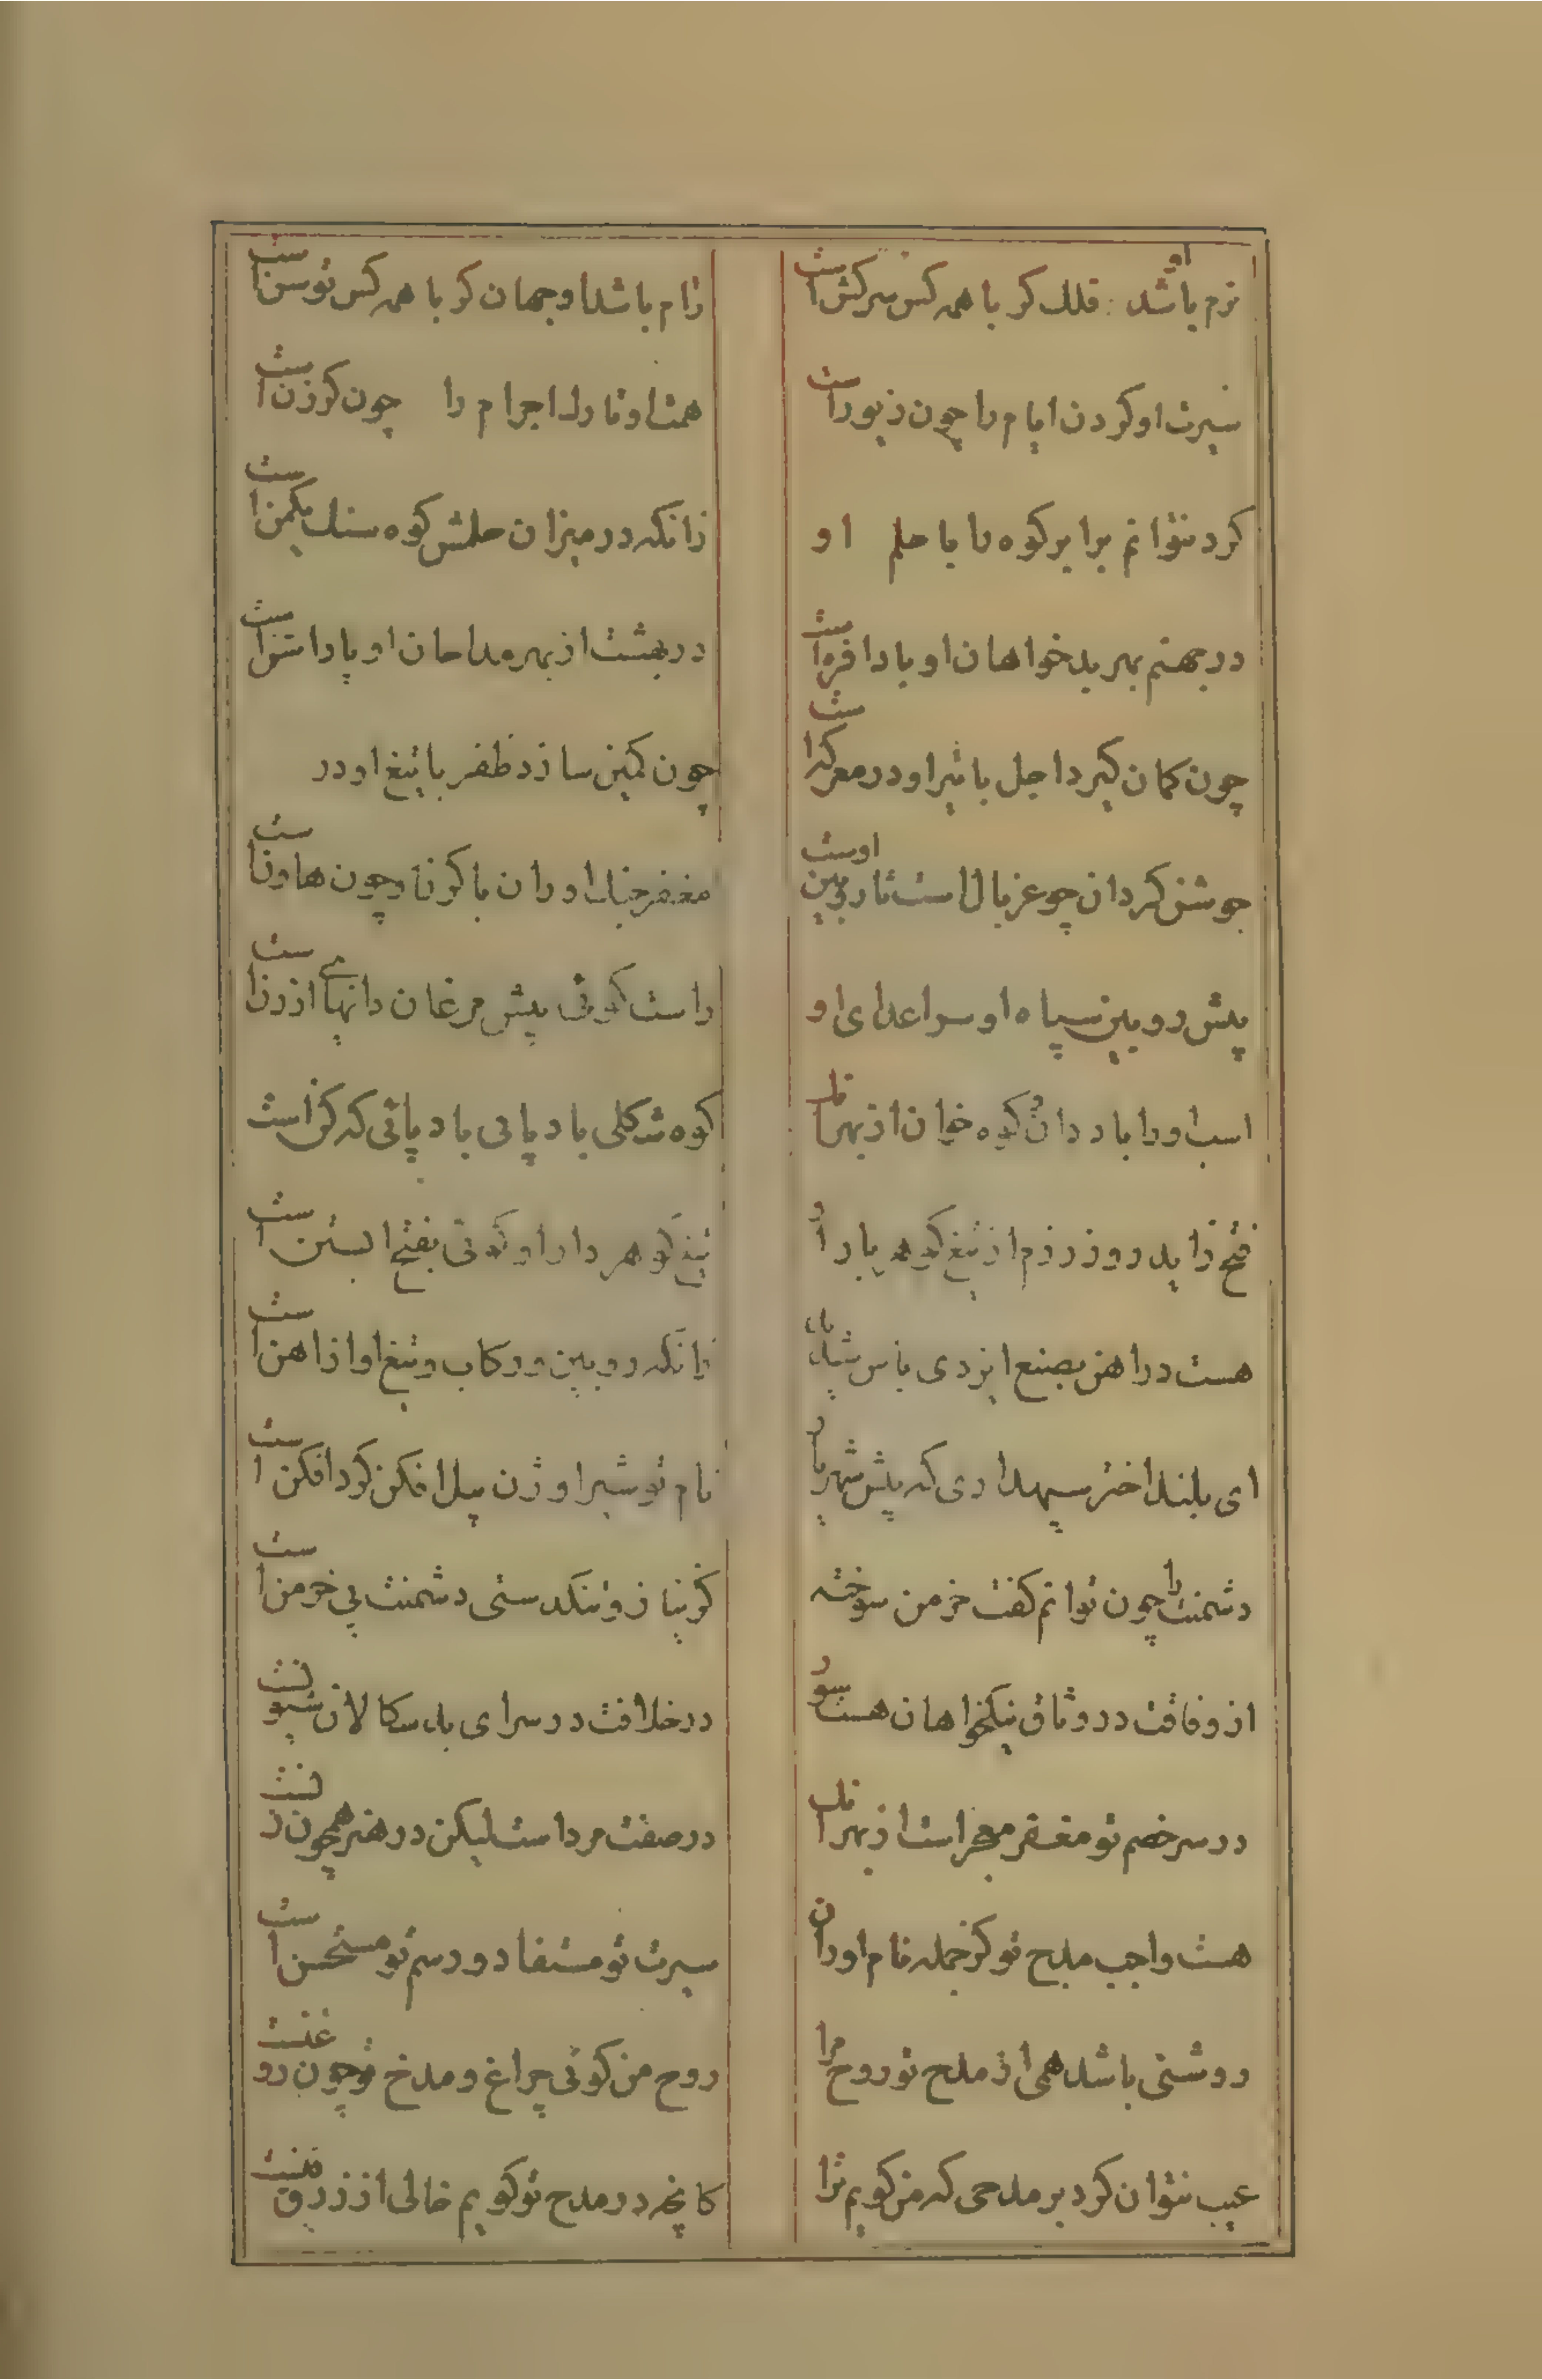 نرم باشد او فلک کر با همه کس سرکش است
رام باشد او جهان کر با همه کس توسن است
سیرت او کردن ایام را چون زیور است
همت او تارک اجرام را چون کرزن است
کرد نتوانم برابر کوه را با حلم او
زانکه در میزان حلمش کوه سنک یکمن است
در جهنم بهر بدخواهان او بادافره است
در بهشت از بهر مداحان او پاداشن است
چون کمان کیرد اجل با تیر او در معرکه است
چون کمین سازد ظفر با تیغ او در
جوشن کردان چو غربال است تا روبین اوست
مغفر جنک اوران با کرنا و چون هاون است
پیش روبین سپاه او سر اعدای او
راست کوئی پیش مرغان دانهای ارزن است
اسب او را باد دان و کوه خوان از بهر انک
کوه شکلی باد پائی باد پائی که کن است
فتح زاید روز رزم از تیغ کوهر بار او
تیغ کوهر دار او کوئی بفتح ابستن است
هست در اهن بصنع ایزدی باس شدید
زانکه روبین و رکاب و تیغ او از اهن است
ای بلند اختر سپهداری که پیش شهریار
نام تو شیر اوژن پیل افکن کرد افکن است
دشمنت را چون توانم کفت خرمن سوخته
کز نیاز و تنکدستی دشمنت بی خرمن است
از وفاقت در وثاق نیکخواهان هست سور
در خلافت در سرای بد سکالان شیونست
در سر خصم تو مغفر معجر است از بهر انک
در صفت مرد است لیکن در هنر همچون زنست
هست واجب مدح تو کز جمله نام اوران
سیرت تو مستفاد و رسم تو مستحسن است
روشنی باشد همی از مدح تو روح مرا
روح من کوئی چراغ و مدح تو چون روغنست
عیب نتوان کرد بر مدحی که من کویم ترا
کانچه در مدح تو کویم خالی از زرق و فنست